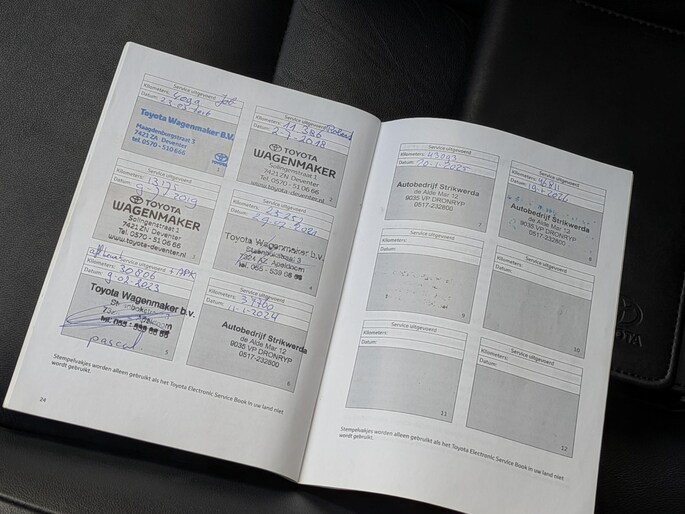 Service uitgevoerd
Kilometers:
Datum:
Toyota Wagenmaker B.V.
Maagdenburgstraat 3
7421 ZA Deventer
tel. 0570 - 510 666
TOYOTA
1
Service uitgevoerd
Kilometers: 11 386
Datum: 2-7-2018
TOYOTA
WAGENMAKER
Solingenstraat 1
7421 ZN Deventer
Tel. 0570 - 51 06 66
www.toyota-deventer.nl
2
Service uitgevoerd
Kilometers:
Datum:
TOYOTA
WAGENMAKER
Solingenstraat 1
7421 ZN Deventer
Tel. 0570 - 51 06 66
www.toyota-deventer.nl
3
Service uitgevoerd
Kilometers:
Datum:
Toyota Wagenmaker b.v.
Apeldoorn
4
Service uitgevoerd + APK
Kilometers: 30806
Datum: 9-02-2023
Toyota Wagenmaker b.v.
5
Service uitgevoerd
Kilometers:
Datum: 11-1-2024
Autobedrijf Strikwerda
de Alde Mar 12
9035 VP DRONRYP
0517-232800
6
Stempelvakjes worden alleen gebruikt als het Toyota Electronic Service Book in uw land niet
wordt gebruikt.
24
Service uitgevoerd
Kilometers: 43093
Datum:
Autobedrijf Strikwerda
de Alde Mar 12
9035 VP DRONRYP
0517-232800
7
Service uitgevoerd
Kilometers:
Datum:
Autobedrijf Strikwerda
de Alde Mar 12
9035 VP DRONRYP
0517-232800
8
Service uitgevoerd
Kilometers:
Datum:
9
Service uitgevoerd
Kilometers:
Datum:
10
Service uitgevoerd
Kilometers:
Datum:
11
Service uitgevoerd
Kilometers:
Datum:
12
Stempelvakjes worden alleen gebruikt als het Toyota Electronic Service Book in uw land niet
wordt gebruikt.
TOYOTA